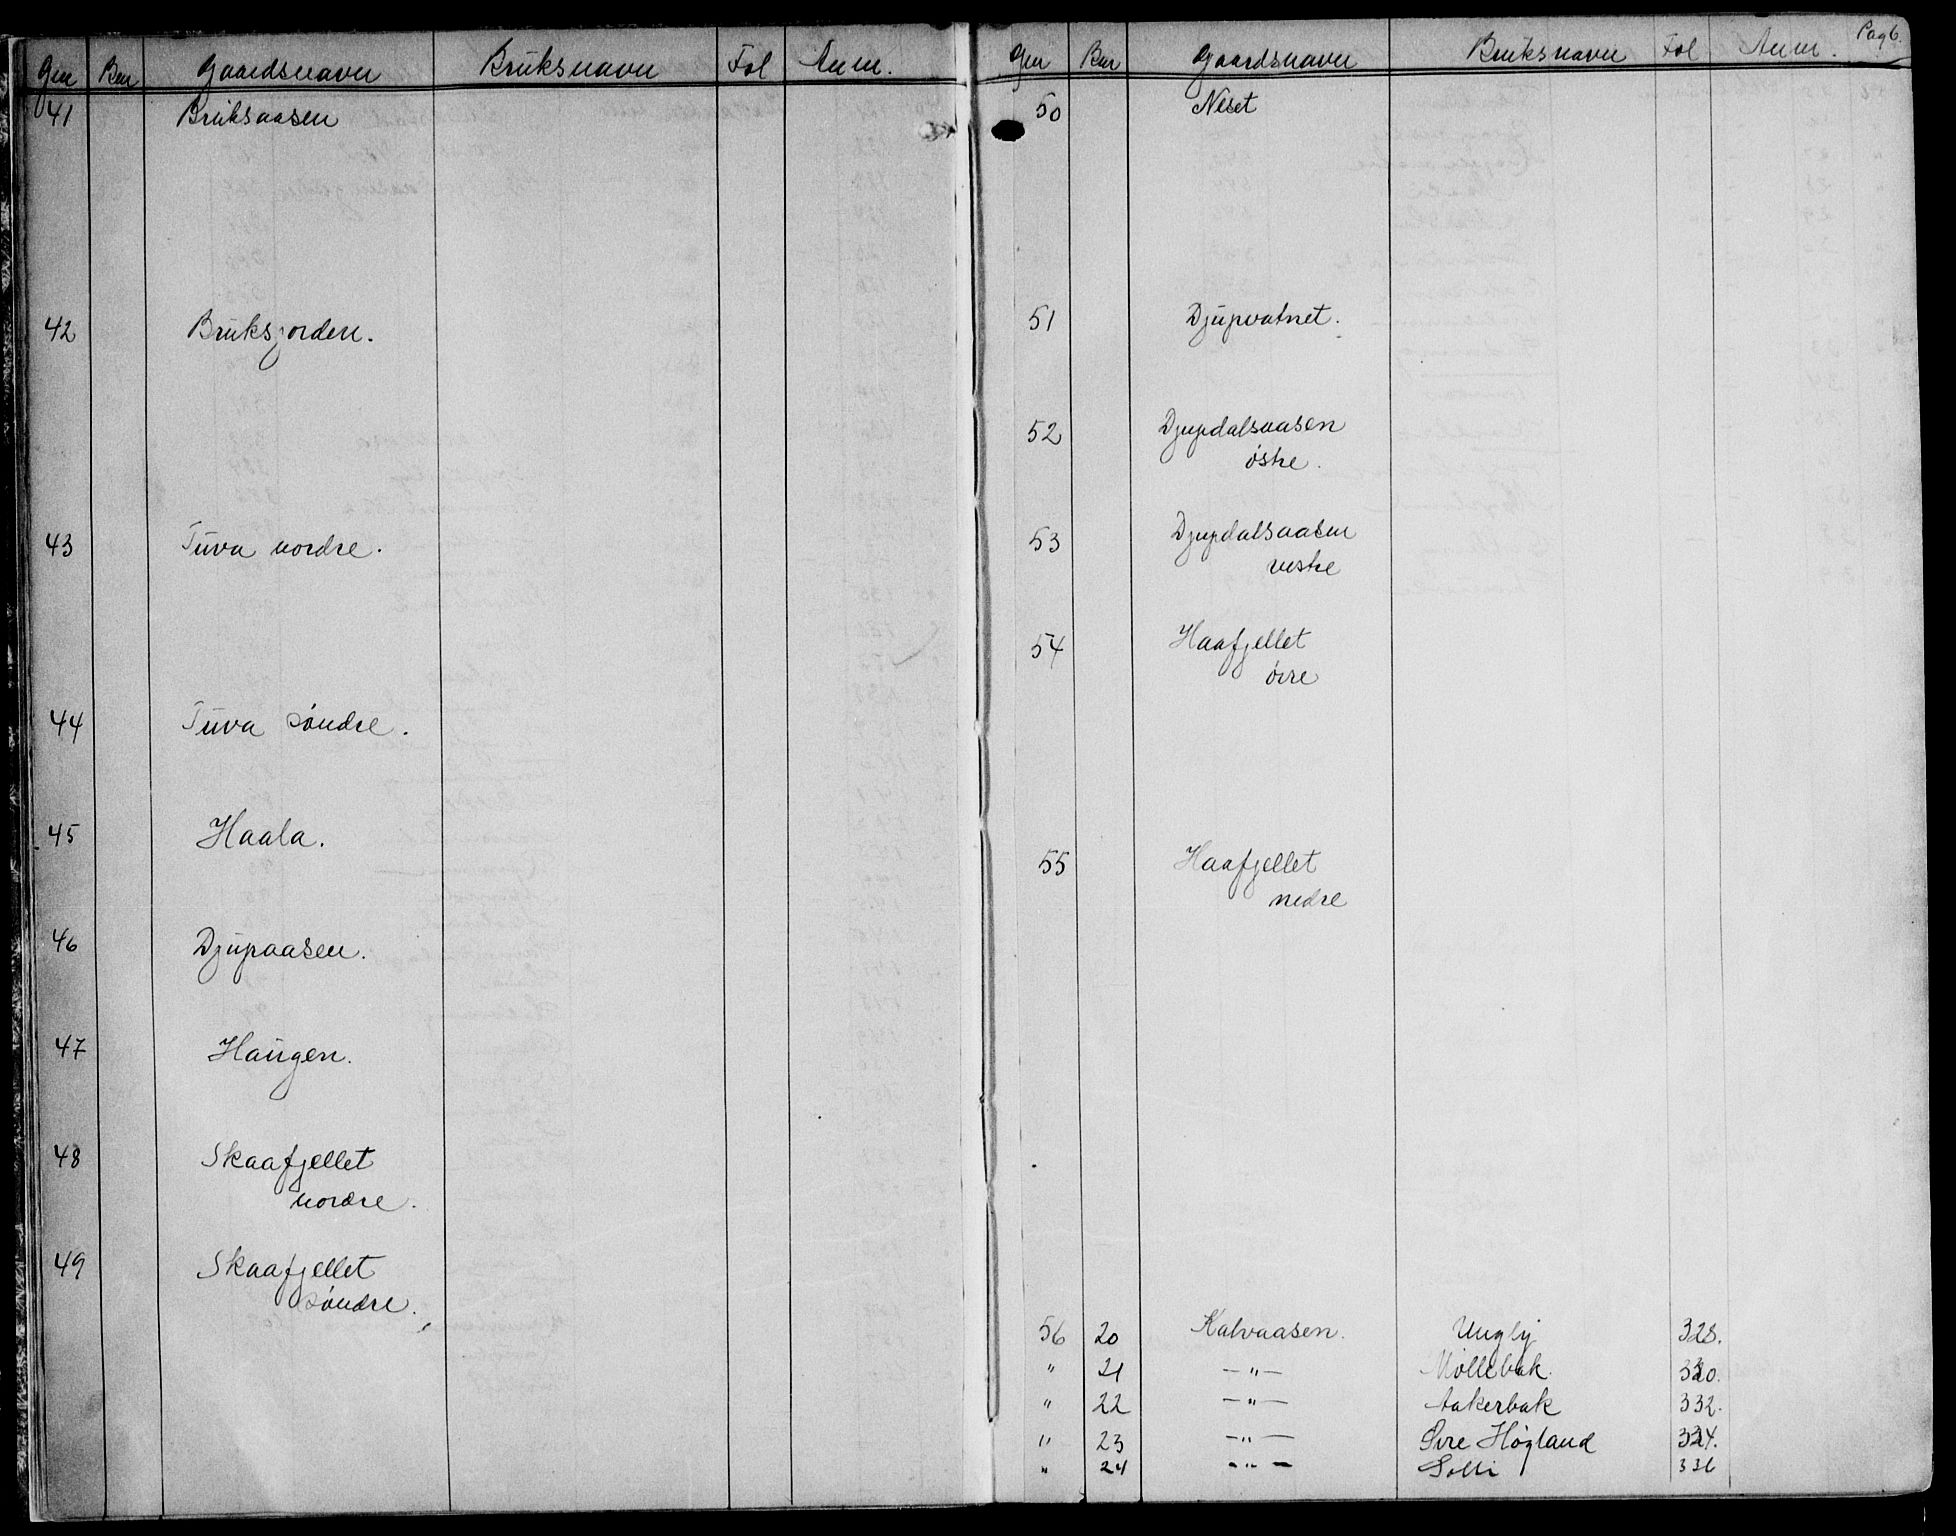 Gnr Bnr Gaardsnavn Bruksnavn Fol Anm.
41 Bruksaasen
42 Bruksjorden.
43 Tuva nordre.
44 Tuva søndre.
45 Haala.
46 Djupaasen.
47 Haugen.
48 Skaafjellet
nordre.
49 Skaafjellet
søndre.
Pag 6.
Gnr Bnr Gaardsnavn Bruksnavn Fol Anm.
50 Neset
51 Djupvatnet.
52 Djupdalsaasen
østre.
53 Djupdalsaasen
vestre
54 Haafjellet
øvre
55 Haafjellet
nedre
56 20 Kalvaasen. Ungly 328.
" 21 —"— Møllebak. 330.
" 22 —"— Aakerbak 332.
" 23 —"— Øvre Høgland 334.
" 24 —"— Solli 336